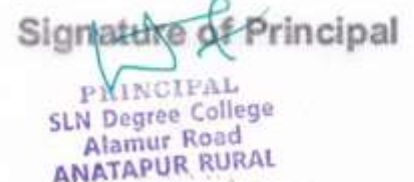 Signature of Principal
PRINCIPAL
SLN Degree College
Alamur Road
ANATAPUR RURAL